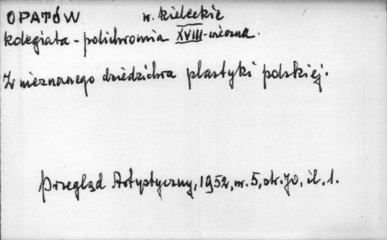 OPATÓW w. kieleckie
kolegiata - polichromia XVIII-wieczna.
Z nieznanego dziedzictwa plastyki polskiej.
Przegląd Artystyczny, 1952, nr. 5, str. 70, il. 1.